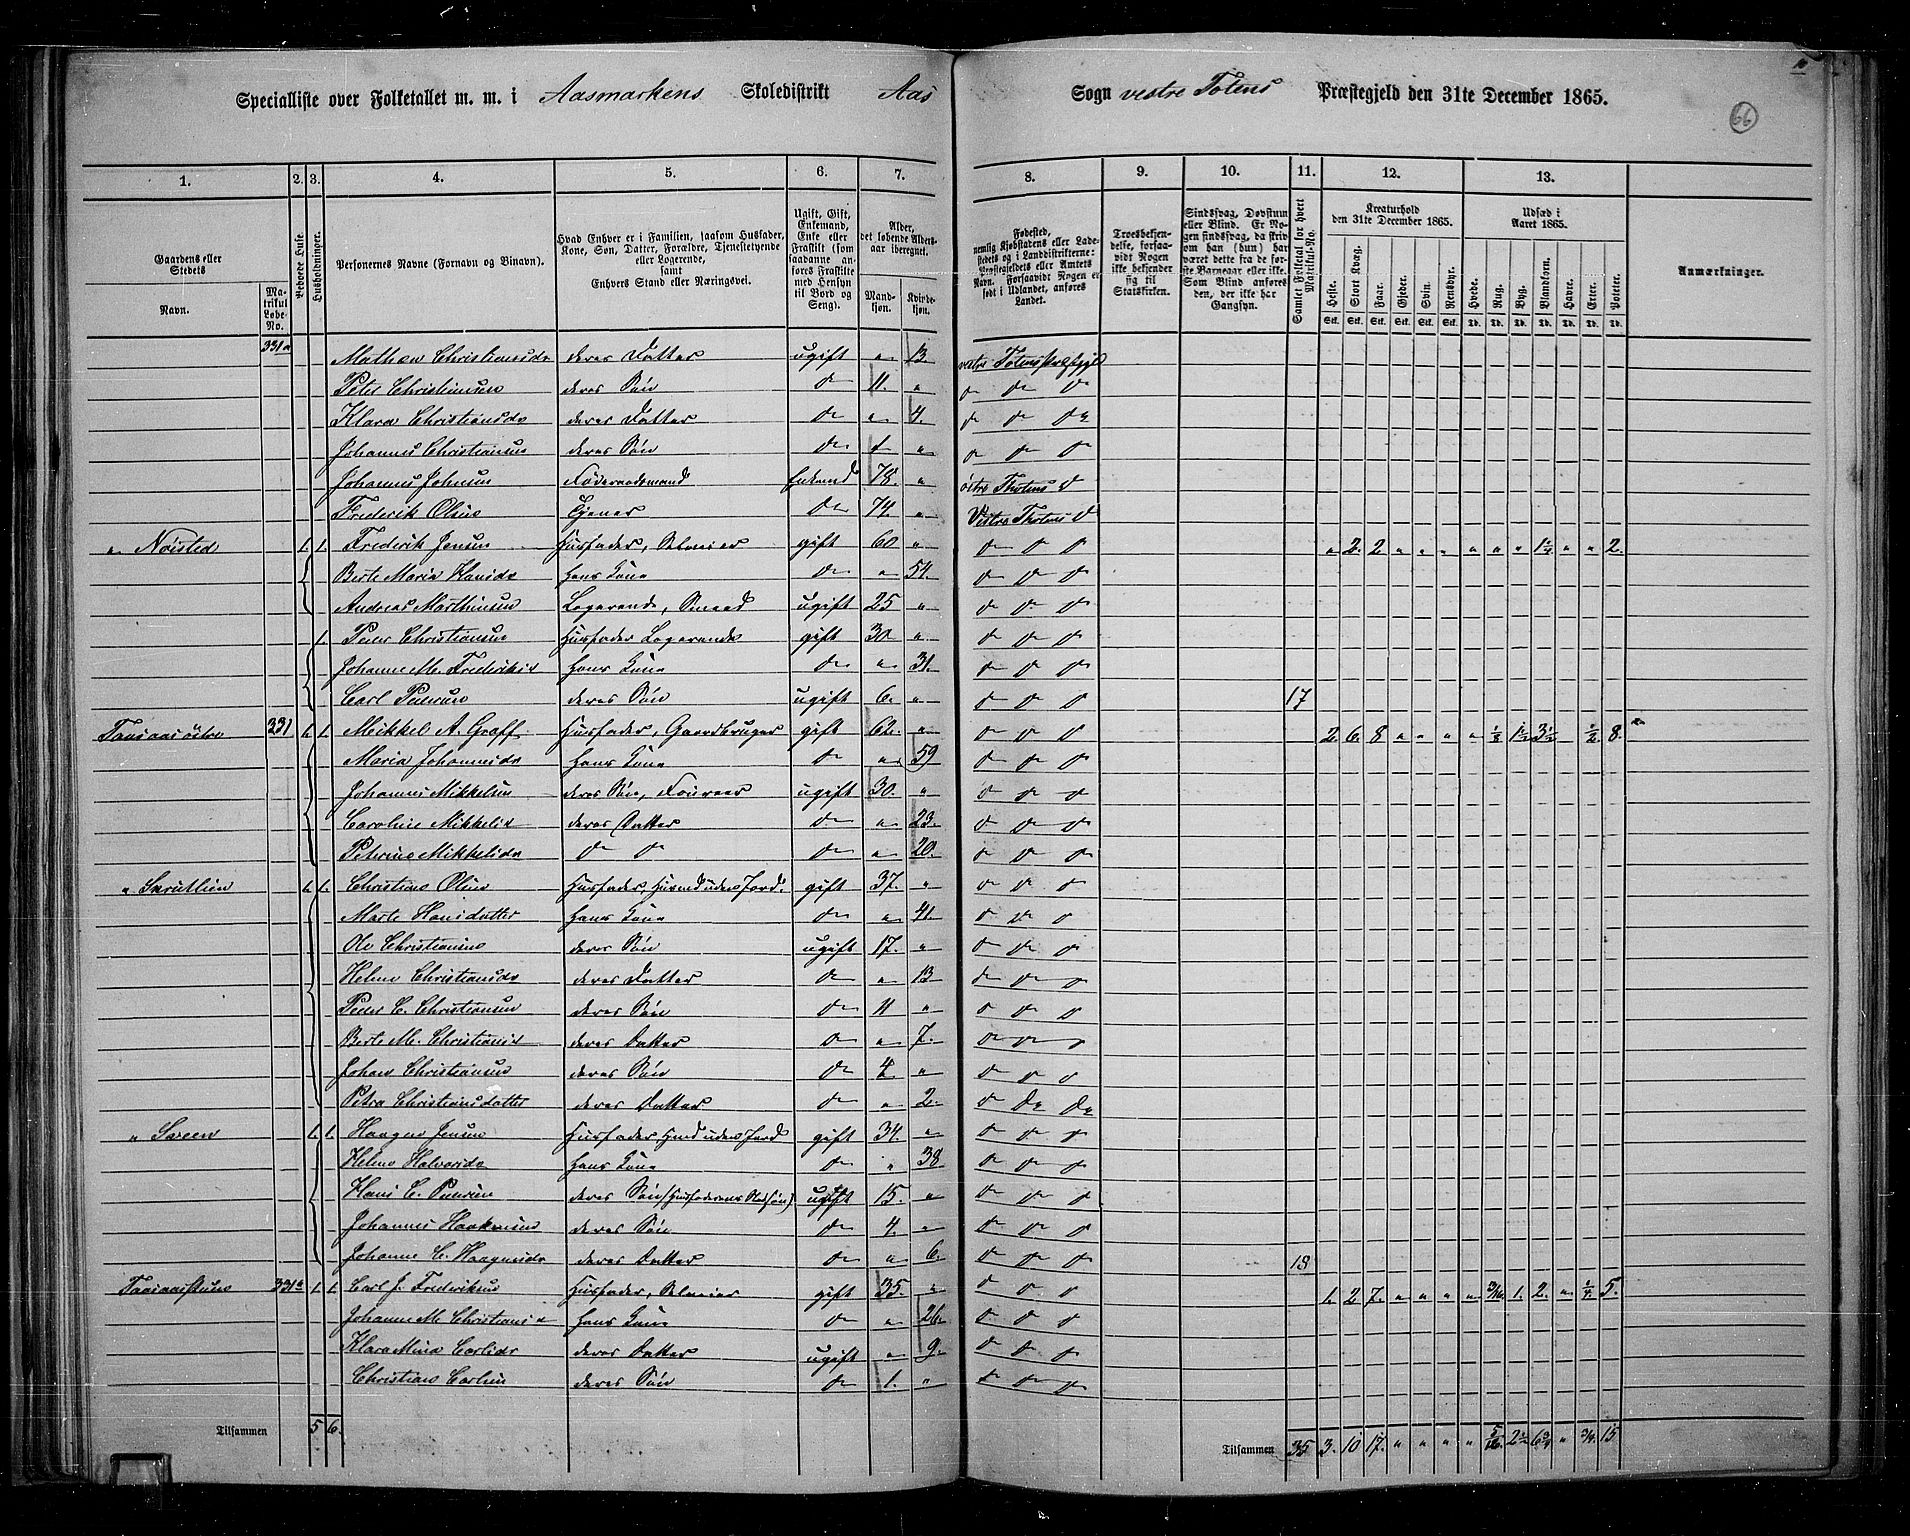 Specialliste over Folketallet m. m. i Aasmarkens Skoledistrikt Aas Sogn vestre Totens Præstegjeld den 31te December 1865.
66
1. 2. 3. 4. 5. 6. 7. 8. 9. 10. 11. 12. 13.
Gaardens eller Stedets
Navn.
Matrikul Løbe-No.
Beboede Huse.
Husholdninger.
Personernes Navne (Fornavn og Binavn).
Hvad Enhver er i Familien, saasom Husfader, Kone, Søn, Datter, Forældre, Tjenestetyende eller Logerende, samt Enhvers Stand eller Næringsvei.
Ugift, Gift, Enkemand, Enke eller Fraskilt (som saadanne anføres Fraskilte med Hensyn til Bord og Seng).
Alder, det løbende Alders-aar iberegnet.
Mandkjøn. Kvindekjøn.
Fødested, nemlig Kjøbstadens eller Ladestedets og i Landdistrikterne: Præstegjeldets eller Amtets Navn. Forsaavidt Nogen er født i Udlandet, anføres Landet.
Troesbekjendelse, forsaavidt Nogen ikke bekjender sig til Statskirken.
Sindssvag, Døvstum eller Blind. Er Nogen sindssvag, da skrives om han (hun) har været dette fra de første Barneaar eller ikke. Som Blind anføres den, der ikke har Gangsyn.
Samlet Folketal for hvert Matrikul-No.
Kreaturhold den 31te December 1865.
Heste. Stort Kvæg. Faar. Gjeder. Svin. Rensdyr.
Udsæd i Aaret 1865.
Hvede. Rug. Byg. Blandkorn. Havre. Erter. Poteter.
Anmærkninger.
331a Mathea Christiansdr deres Datter ugift " 13 vestre Totens Præstegjld
Peter Christiansen deres Søn do 11. " do do do
Klara Christiansdr deres Datter do " 4. do do do
Johannes Christiansen deres Søn do 1 " do do do
Johannes Johnsen Føderaadsmand Enkemd 78. " østre Thotens do
Frederik Olsen do 74. " Vestre Thotens do
" Nøisted 1. 1. Frederik Jensen Husfader, Selveier gift 60 " do do do " 2. 2 " " " " " " 1¼ " " 2.
Berte Maria Hansdr Hans Kone do " 54. do do do
Andreas Marthinsen Logerende, Smed ugift 25 " do do do
1. Peter Christiansen Husfader Logerende gift 30 " do do do
Johanne M. Frederiksd Hans Kone do " 31. do do do
Carl Petersen deres Søn ugift 6. " do do do 17
331 1. 1. Mikkel A. Graff Husfader, Gaardbruger gift 62. " do do do 2. 6. 8 " " " " ⅛ 1½ 3½ ½ 8.
Maria Johannesdr Hans Kone do " 59 do do do
Johannes Mikkelsen deres Søn, ugift 30. " do do do
Caroline Mikkelsd deres Datter do " 23. do do do
Petrine Mikkelsdr do do do " 20. do do do
1. 1. Christian Olsen Husfader, Husmd uden Jord. gift 37. " do do do
Marte Hansdatter Hans Kone do " 41. do do do
Ole Christiansen deres Søn ugift 17. " do do do
Helene Christiansdr deres Datter do " 13 do do do
Peder C. Christiansen deres Søn do 11 " do do do
Berte M. Christiansd deres Datter do " 7. do do do
Johan Christiansen deres Søn do 4 " do do do
Petra Christiansdatter deres Datter do " 2. do do do
" Sveen 1. 1. Haagen Jensen Husfader Husmd uden Jord gift 34. " do do do
Helene Halvorsdr Hans Kone do " 38 do do do
Hans C. Petersen deres Søn (Husfaderens Stedsøn) ugift 15. " do do do
Johannes Haagensen deres Søn do 4. " do do do
Johanne C. Haagensdr deres Datter do " 6. do do do 18
331a 1. 1. Carl J. Frederiksen Husfader, Selveier gift 35. " do do do 1. 2 7. " " " " 3/16 1. 2. " ¼ 5.
Johanne M. Christiansd Hans Kone do " 26. do do do
Klara Mina Carlsdr deres Datter ugift " 9. do do do
Christian Carlsen deres Søn do 1. " do do do
Tilsammen 5 6. Tilsammen 35 3. 10 17. " " " " 5/16 2½ 6¾ " ¾ 15